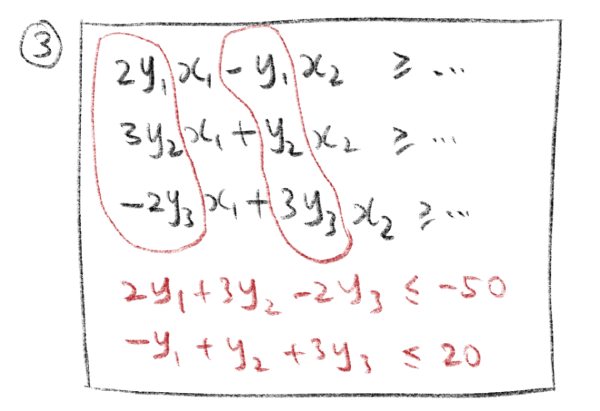 ③
2y₁x₁ - y₁x₂ ≥ ...
3y₂x₁ + y₂x₂ ≥ ...
-2y₃x₁ + 3y₃x₂ ≥ ...
2y₁ + 3y₂ - 2y₃ ≤ -50
-y₁ + y₂ + 3y₃ ≤ 20